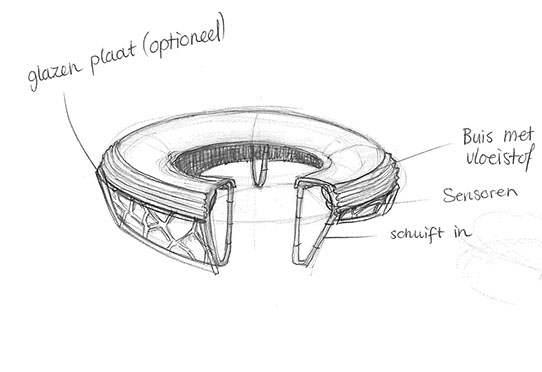 glazen plaat (optioneel)
Buis met
vloeistof
Sensoren
schuift in